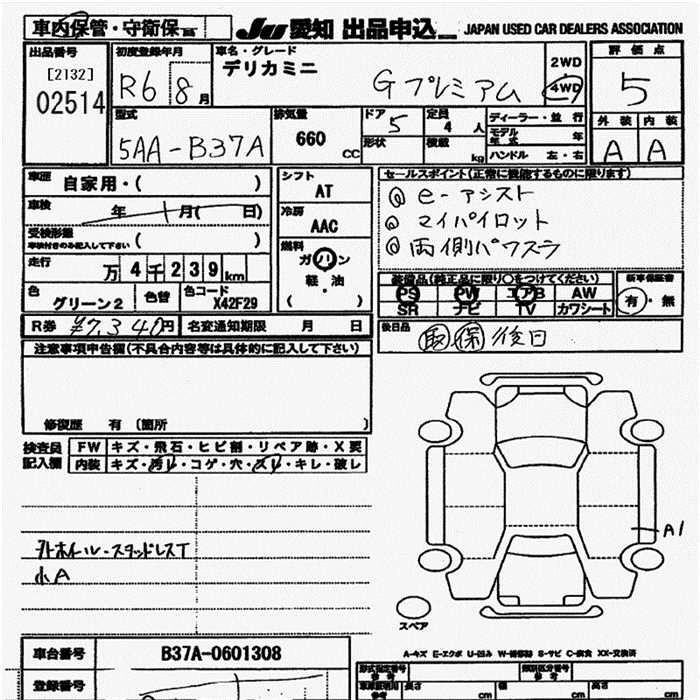 車内保管・守衛保管 JU 愛知 出品申込 JAPAN USED CAR DEALERS ASSOCIATION
出品番号 初度登録年月 車名・グレード 評価点
[2132] 02514 R6 8月 デリカミニ Gプレミアム 2WD 4WD 5
型式 排気量 ドア 定員 ディーラー・並行 外装 内装
5AA-B37A 660cc 5 4人 モデル年式 年 A A
形状 積載 kg ハンドル 左・右
車歴 自家用・( ) シフト AT セールスポイント(正常に機能するものに限ります)
車検 年 月( 日) 冷房 AAC ◎ e-アシスト
◎ マイパイロット
受検形態 車検付きのみ記入して下さい ( ) 燃料 ガソリン ◎ 両側パワスラ
走行 万4千239km 軽油 ( )
装備品(純正品に限り○をつけてください) 新車保証書
色 グリーン2 色替 色コード X42F29 PS PW エアB AW 有・無
SR ナビ TV カワシート
R券 ¥7,340円 名変通知期限 月 日 後日品 取 保 後日
注意事項申告欄(不具合内容等は具体的に記入して下さい)
修復歴 有 〔箇所 〕
検査員記入欄 FW キズ・飛石・ヒビ割・リペア跡・X要
内装 キズ・汚レ・コゲ・穴・スレ・キレ・破レ
A1
外ホイル-スタッドレスT
小A
スペア
A-キズ E-エクボ U-凹み W-補修跡 S-サビ C-腐食 XX-交換済
車台番号 B37A-0601308 型式指定番号 参考 類別区分番号 参考
登録番号 車庫証明用 参考 長さ cm 幅 cm 高さ cm